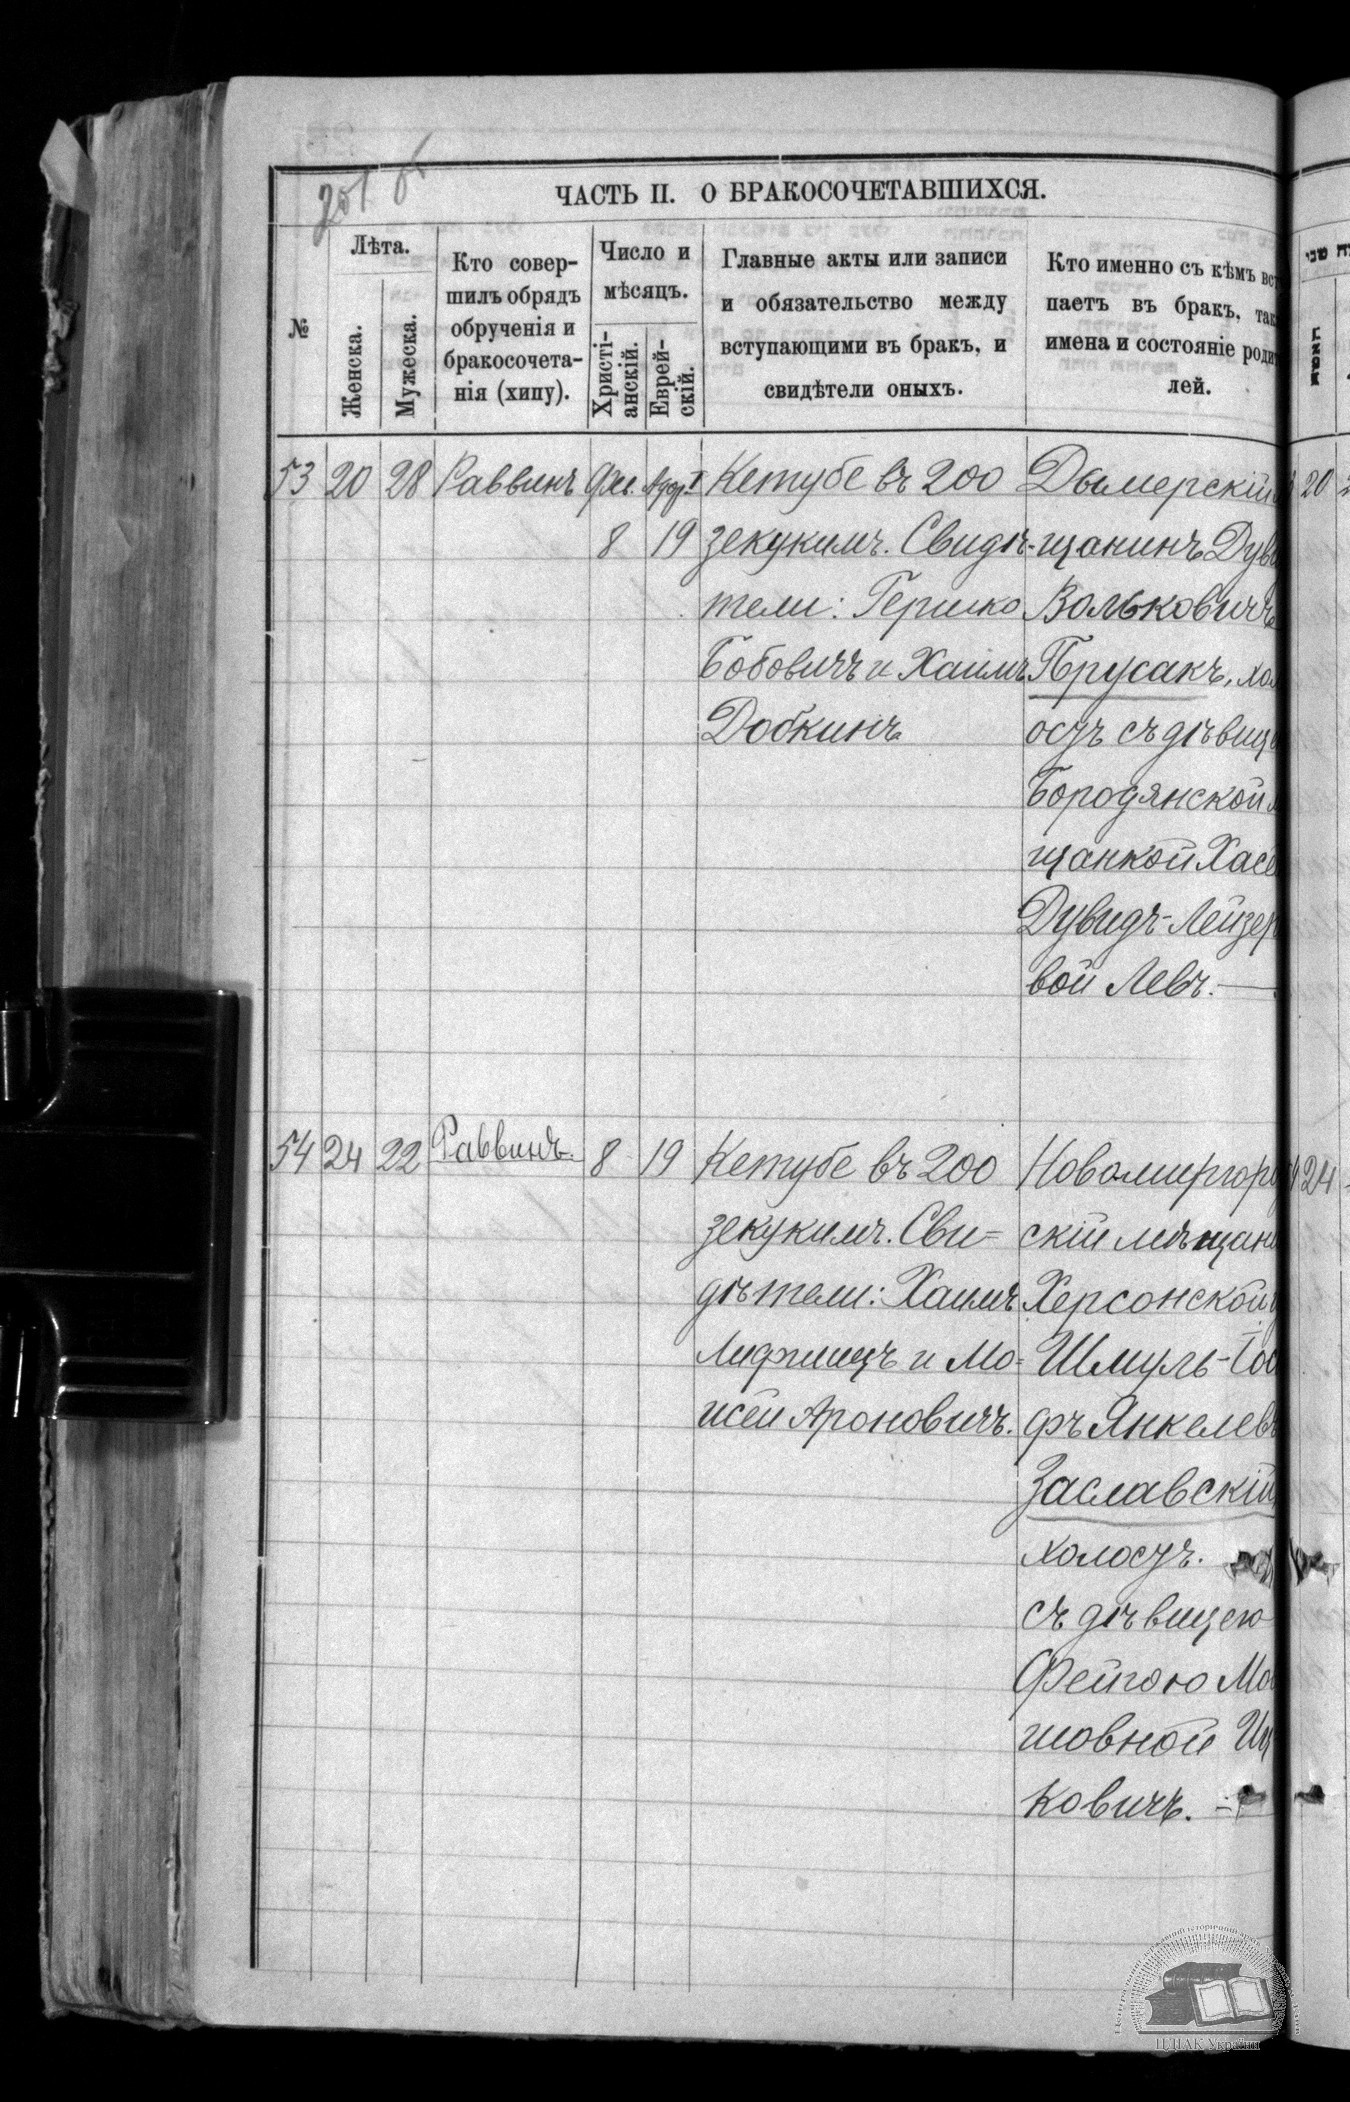 ЧАСТЬ II. О БРАКОСОЧЕТАВШИХСЯ.
№
Лѣта.
Женска.
Мужеска.
Кто совер-
шилъ обрядъ
обрученія и
бракосочета-
нія (хипу).
Число и
мѣсяцъ.
Христі-
анскій.
Еврей-
скій.
Главные акты или записи
и обязательство между
вступающими въ бракъ, и
свидѣтели оныхъ.
Кто именно съ кѣмъ вст
паетъ въ бракъ, так
имена и состояніе роди
лей.
53 20 28 Раввинъ Фев. Адор I
8 19
Кетубе въ 200
зекукимъ. Свидѣ-
тели: Гершко
Бобовичъ и Хаимъ
Добкинъ
Дымерскій
щанинъ Дув
Вольковичъ
Прусакъ, хол
осуъ съ дѣвице
Бородянской
щанкой Хасе
Дувидъ-Лейзер
вой Левъ.
20
54 24 22 Раввинъ 8 19
Кетубе въ 200
зекукимъ. Сви-
дѣтели: Хаимъ
Лифшицъ и Мо-
исей Ароновичъ.
Новомиргоро
скій мѣщани
Херсонской
Шмуль-Іос
фъ Янкелев
Заславскій
холосуъ.
съ дѣвицею
Фейгою Мо
шовной Иц
ковичъ.
24
ЦДІАК України